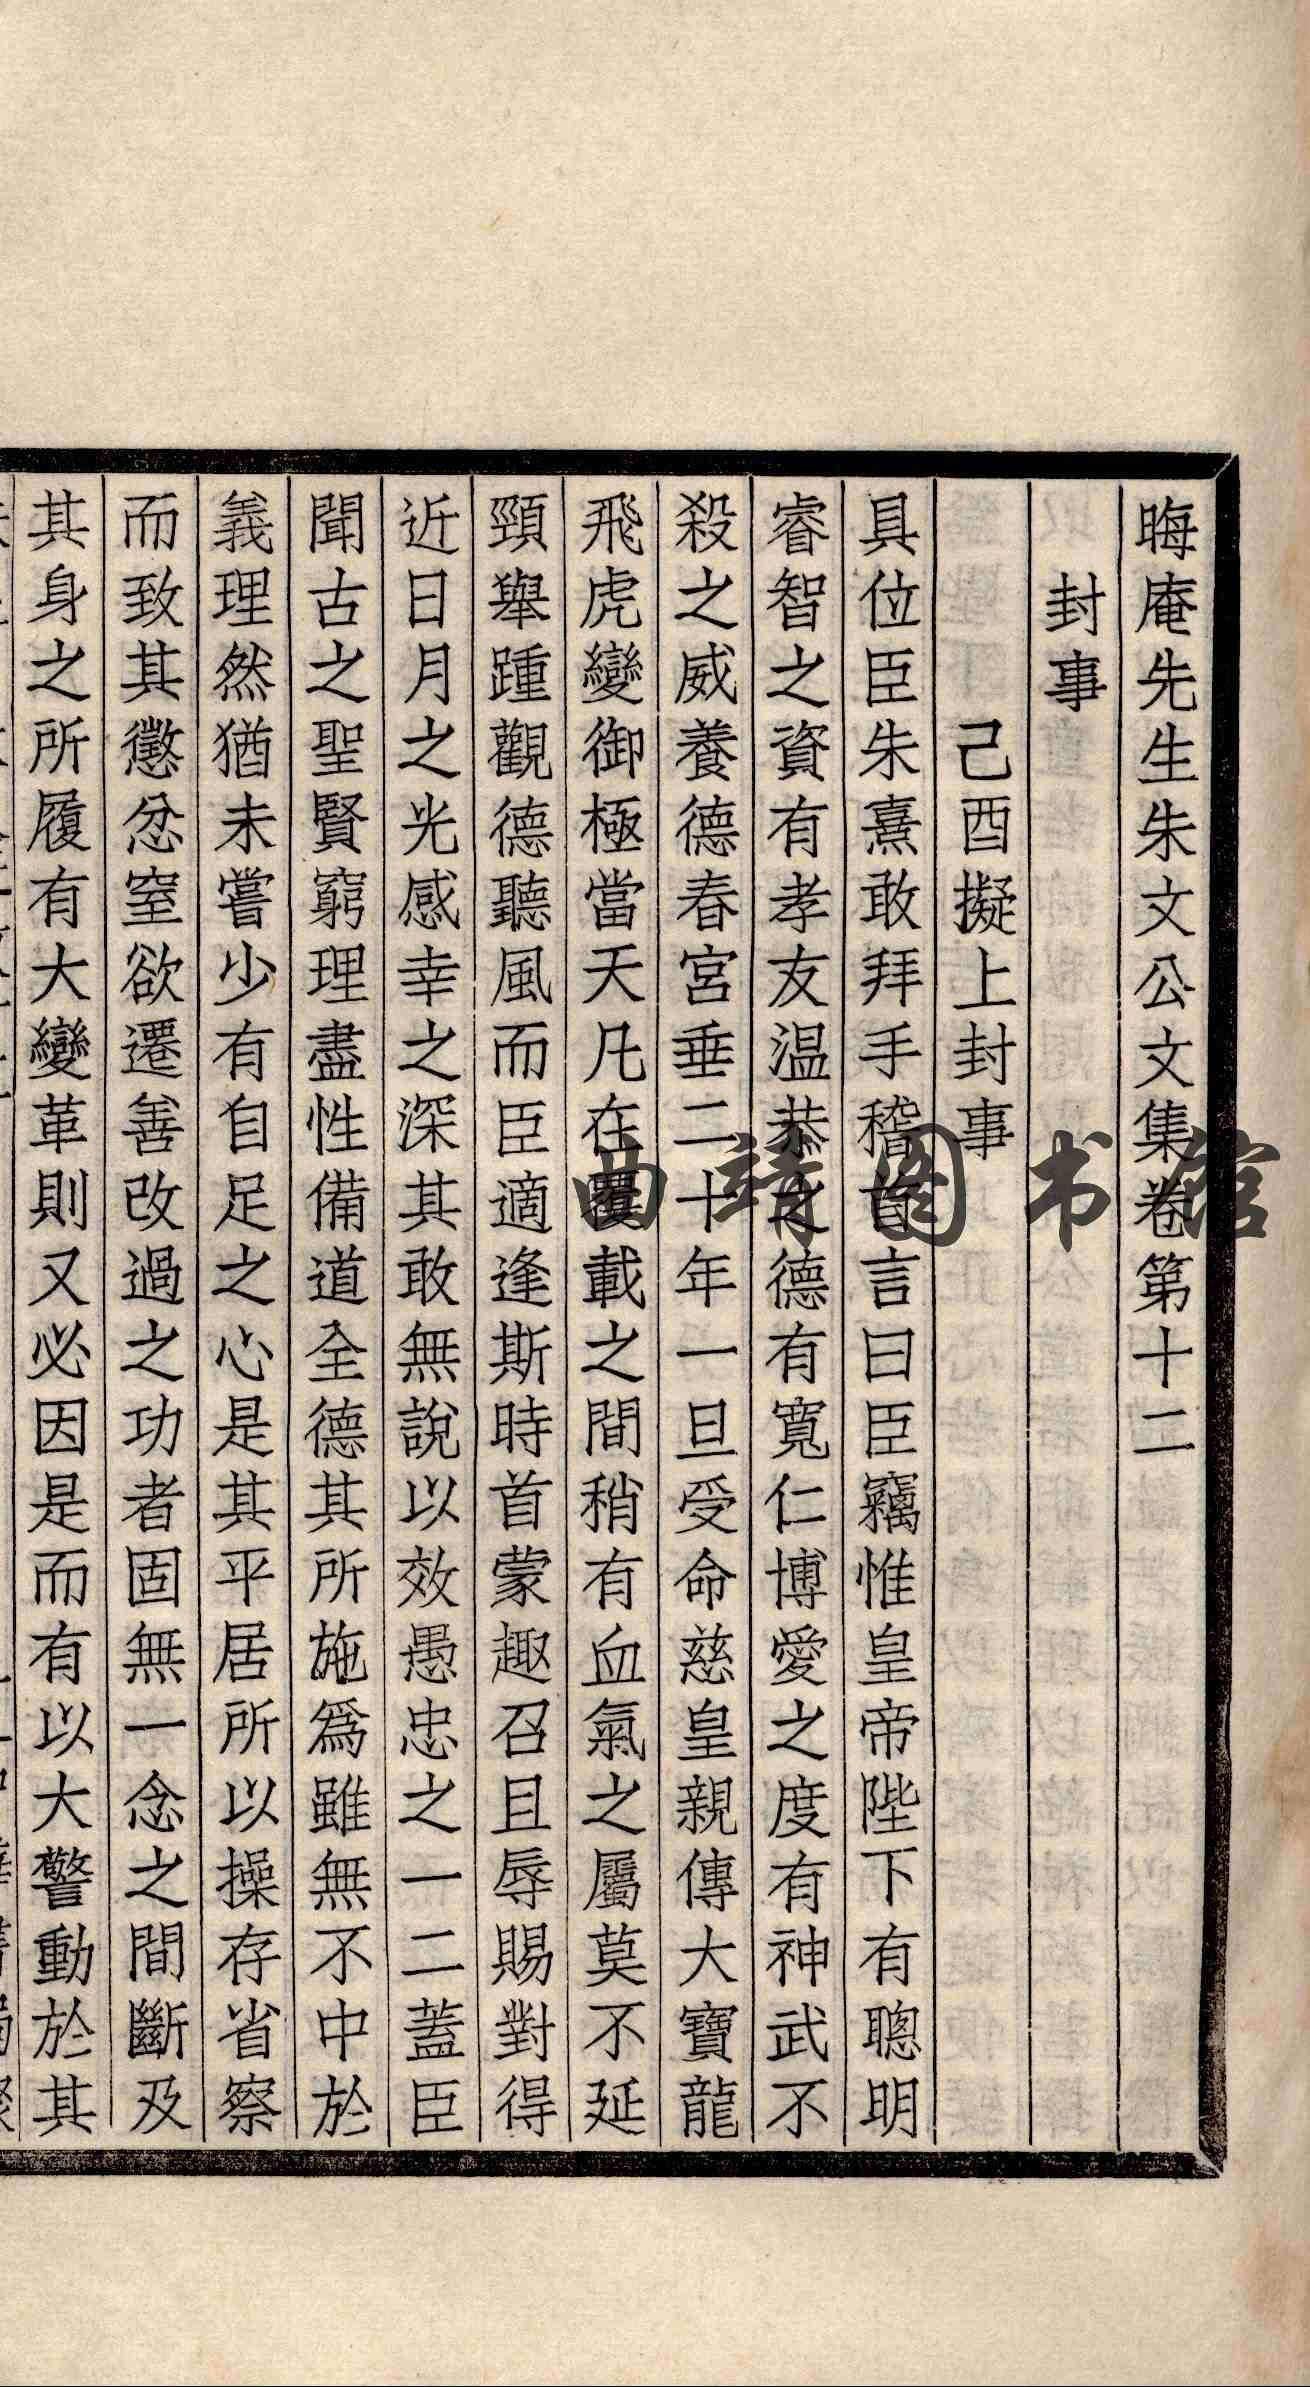 晦庵先生朱文公文集卷第十二
封事
己酉擬上封事
具位臣朱熹敢拜手稽首言曰臣竊惟皇帝陛下有聰明
睿智之資有孝友温恭之德有寬仁博愛之度有神武不
殺之威養德春宮垂二十年一旦受命慈皇親傳大寶龍
飛虎變御極當天凡在覆載之間稍有血氣之屬莫不延
頸舉踵觀德聽風而臣適逢斯時首蒙趣召且辱賜對得
近日月之光感幸之深其敢無說以效愚忠之一二蓋臣
聞古之聖賢窮理盡性備道全德其所施爲雖無不中於
義理然猶未嘗少有自足之心是其平居所以操存省察
而致其懲忿窒欲遷善改過之功者固無一念之間斷及
其身之所履有大變革則又必因是而有以大警動於其
曲靖图书馆